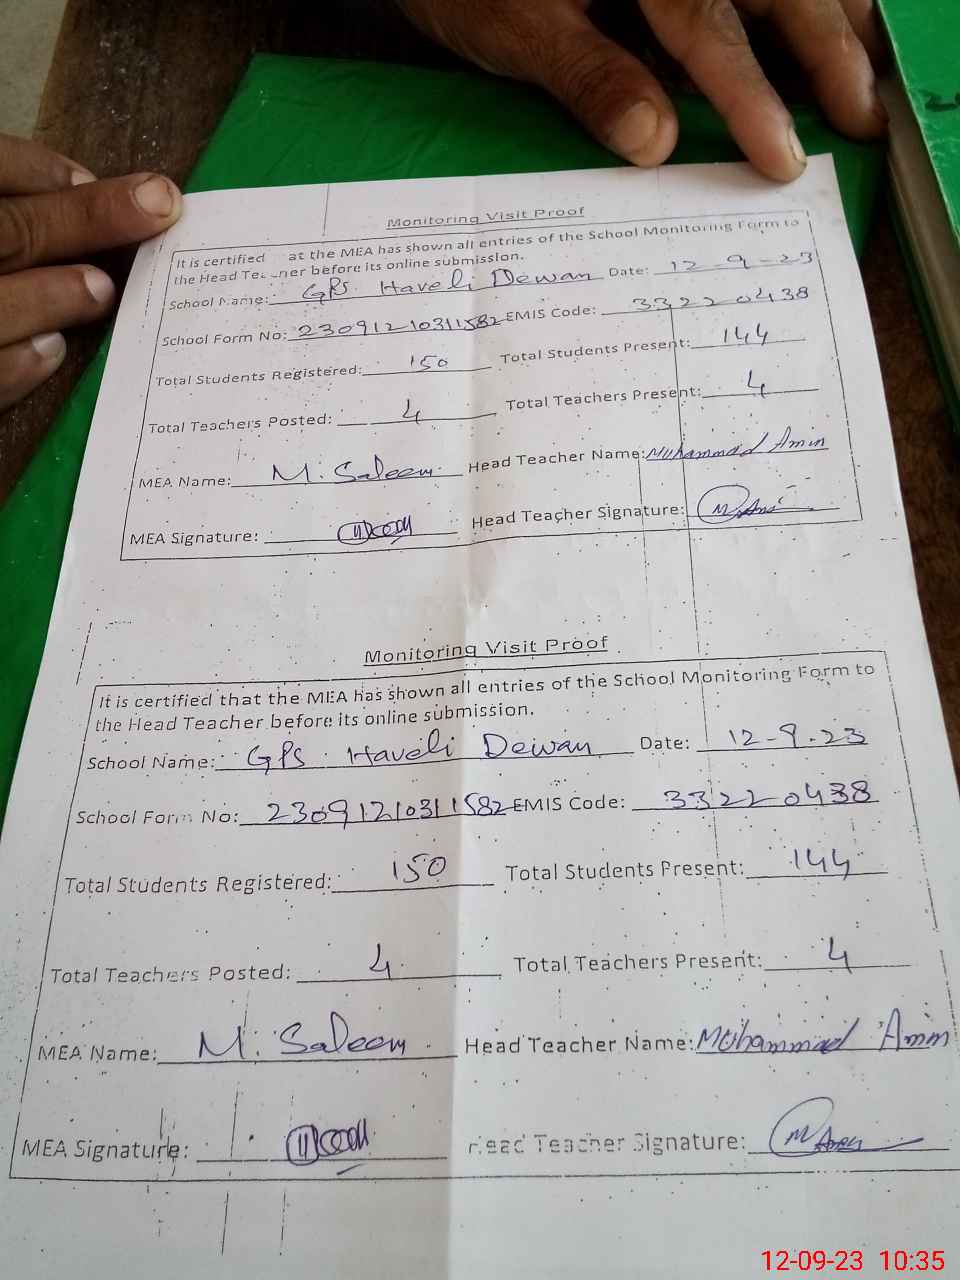 Monitoring Visit Proof
It is certified at the MEA has shown all entries of the School Monitoring Form to
the Head Teacher before its online submission.
School Name: GPS Haveli Dewan Date: 12-9-23
School Form No: 230912103111582 EMIS Code: 33220438
Total Students Registered: 150 Total Students Present: 144
Total Teachers Posted: 4 Total Teachers Present: 4
MEA Name: M. Saleem Head Teacher Name: Muhammad Amin
MEA Signature: Head Teacher Signature:
Monitoring Visit Proof
It is certified that the MEA has shown all entries of the School Monitoring Form to
the Head Teacher before its online submission.
School Name: GPS Haveli Dewan Date: 12-9-23
School Form No: 230912103111582 EMIS Code: 33220438
Total Students Registered: 150 Total Students Present: 144
Total Teachers Posted: 4 Total Teachers Present: 4
MEA Name: M. Saleem Head Teacher Name: Muhammad Amin
MEA Signature: Head Teacher Signature:
12-09-23 10:35